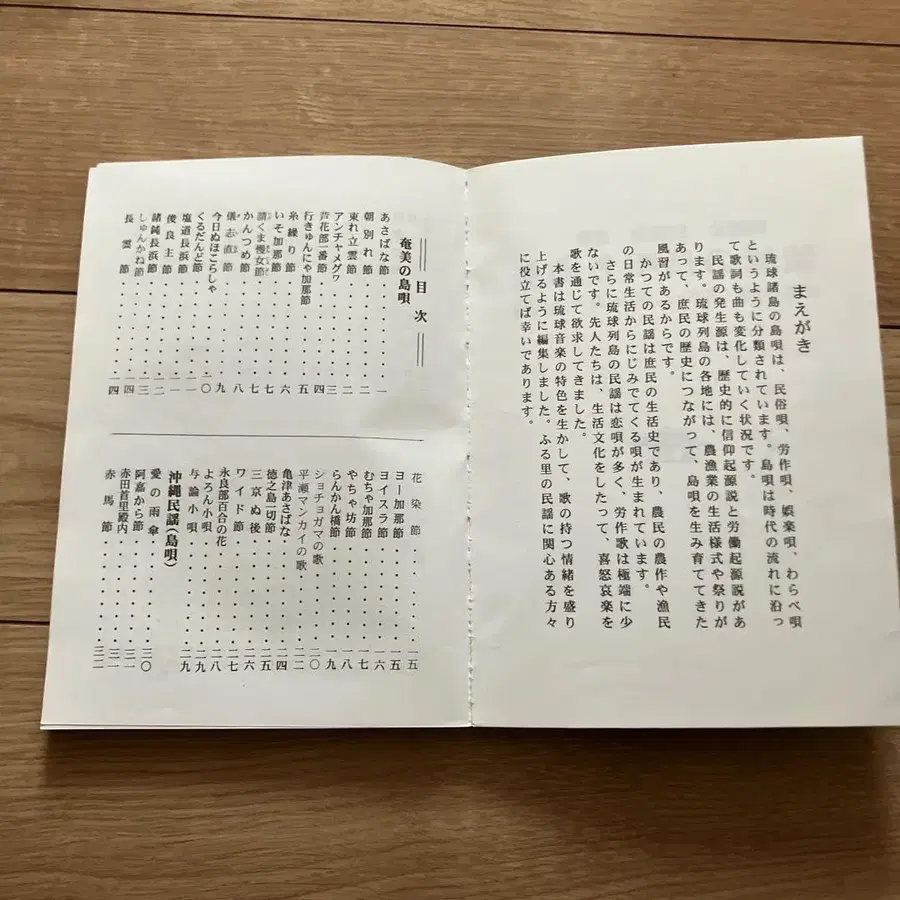 まえがき
琉球諸島の島唄は、民俗唄、労作唄、娯楽唄、わらべ唄
というように分類されています。島唄は時代の流れに沿っ
て歌詞も曲も変化していく状況です。
民謡の発生源は、歴史的に信仰起源説と労働起源説があ
ります。琉球列島の各地には、農漁業の生活様式や祭りが
あって、庶民の歴史につながって、島唄を生み育ててきた
風習があるからです。
かつての民謡は庶民の生活史であり、農民の農作や漁民
の日常生活からにじみでてくる唄が生まれています。
さらに琉球列島の民謡は恋唄が多く、労作歌は極端に少
ないです。先人たちは、生活文化をしたって、喜怒哀楽を
歌を通じて欲求してきました。
本書は琉球音楽の特色を生かして、歌の持つ情緒を盛り
上げるように編集しました。ふる里の民謡に関心ある方々
に役立てば幸いであります。
目次
奄美の島唄
あさばな節・・・・・・一
朝別れ節・・・・・・二
東れ立雲節・・・・・・二
アンチャメグワ・・・・・・三
芦花部一番節・・・・・・四
行きゅんにゃ加那節・・・・・・五
糸繰り節・・・・・・六
いそ加那節・・・・・・七
請くま慢女節・・・・・・七
かんつめ節・・・・・・八
儀志直節・・・・・・九
今日ぬほこらしゃ・・・・・・一〇
くるだんど節・・・・・・一一
塩道長浜節・・・・・・一一
俊良主節・・・・・・一二
諸鈍長浜節・・・・・・一三
しゅんかね節・・・・・・一四
長雲節・・・・・・一四
花染節・・・・・・一五
ヨー加那節・・・・・・一五
ヨイスラ節・・・・・・一六
むちゃ加那節・・・・・・一七
やちゃ坊節・・・・・・一八
らんかん橋節・・・・・・一九
ショチョガマの歌・・・・・・二〇
平瀬マンカイの歌・・・・・・二二
亀津あさばな・・・・・・二四
徳之島一切節・・・・・・二五
三京ぬ後・・・・・・二六
ワイド節・・・・・・二七
永良部百合の花・・・・・・二八
よろん小唄・・・・・・二九
与論小唄・・・・・・二九
沖縄民謡(島唄)
愛の雨傘・・・・・・三〇
阿嘉から節・・・・・・三一
赤田首里殿内・・・・・・三一
赤馬節・・・・・・三二